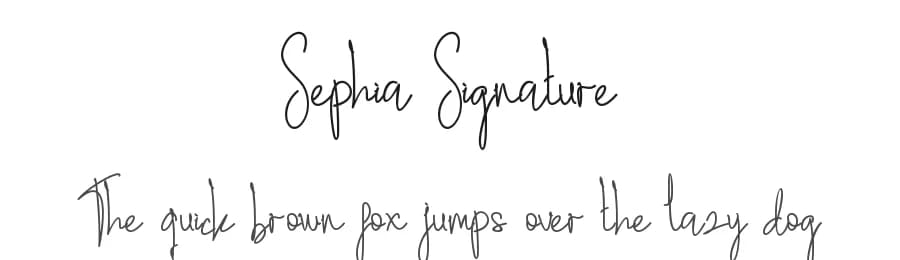 Sephia Signature
The quick brown fox jumps over the lazy dog